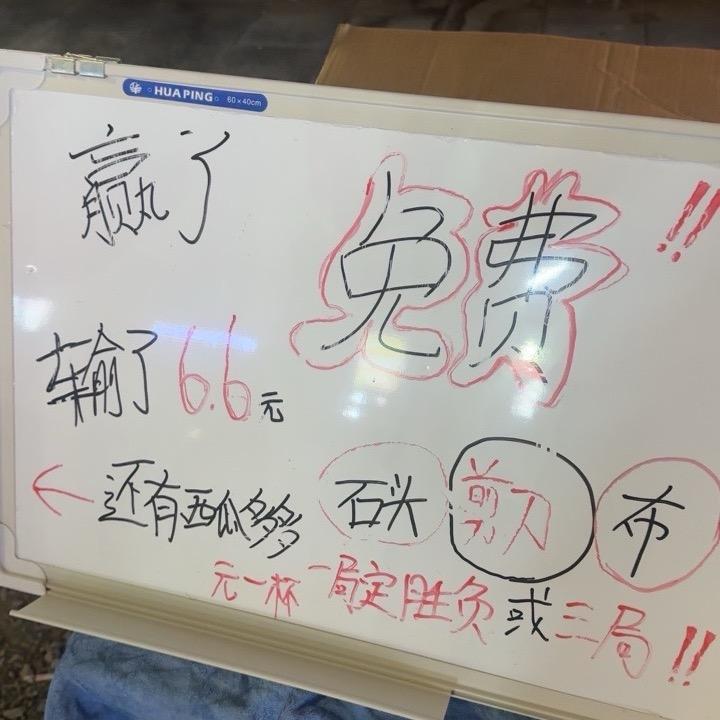 HUAPING 60×40cm
赢了 免费!!
输了 6.6元
←还有西瓜多多 石头 剪刀 布
元一杯 一局定胜负或三局!!